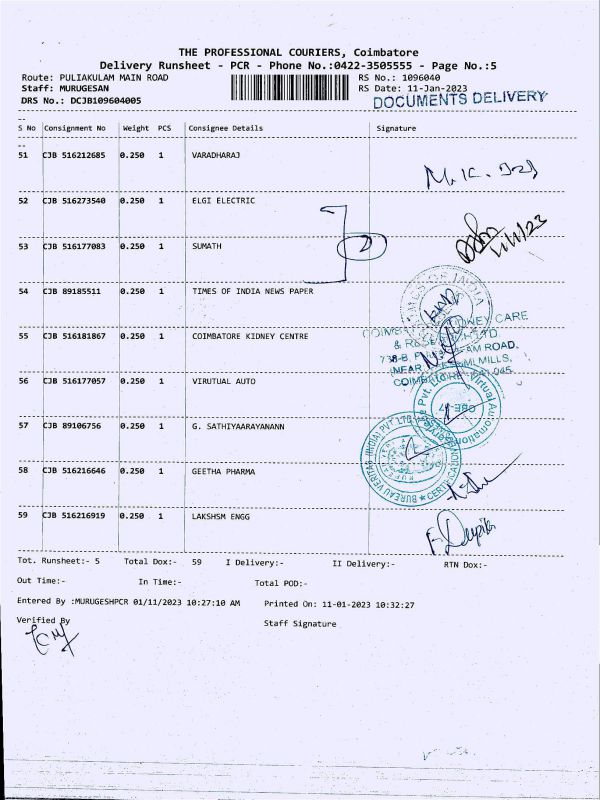 THE PROFESSIONAL COURIERS, Coimbatore
Delivery Runsheet - PCR - Phone No.:0422-3505555 - Page No.:5
Route: PULIAKULAM MAIN ROAD RS No.: 1096040
Staff: MURUGESAN RS Date: 11-Jan-2023
DRS No.: DCJB109604005 DOCUMENTS DELIVERY
S No Consignment No Weight PCS Consignee Details Signature
51 CJB 516212685 0.250 1 VARADHARAJ
52 CJB 516273540 0.250 1 ELGI ELECTRIC
53 CJB 516177083 0.250 1 SUMATH
54 CJB 89185511 0.250 1 TIMES OF INDIA NEWS PAPER
55 CJB 516181867 0.250 1 COIMBATORE KIDNEY CENTRE
56 CJB 516177057 0.250 1 VIRUTUAL AUTO
57 CJB 89106756 0.250 1 G. SATHIYAARAYANANN
58 CJB 516216646 0.250 1 GEETHA PHARMA
59 CJB 516216919 0.250 1 LAKSHSM ENGG
Tot. Runsheet:- 5 Total Dox:- 59 I Delivery:- II Delivery:- RTN Dox:-
Out Time:- In Time:- Total POD:-
Entered By :MURUGESHPCR 01/11/2023 10:27:10 AM Printed On: 11-01-2023 10:32:27
Verified By Staff Signature